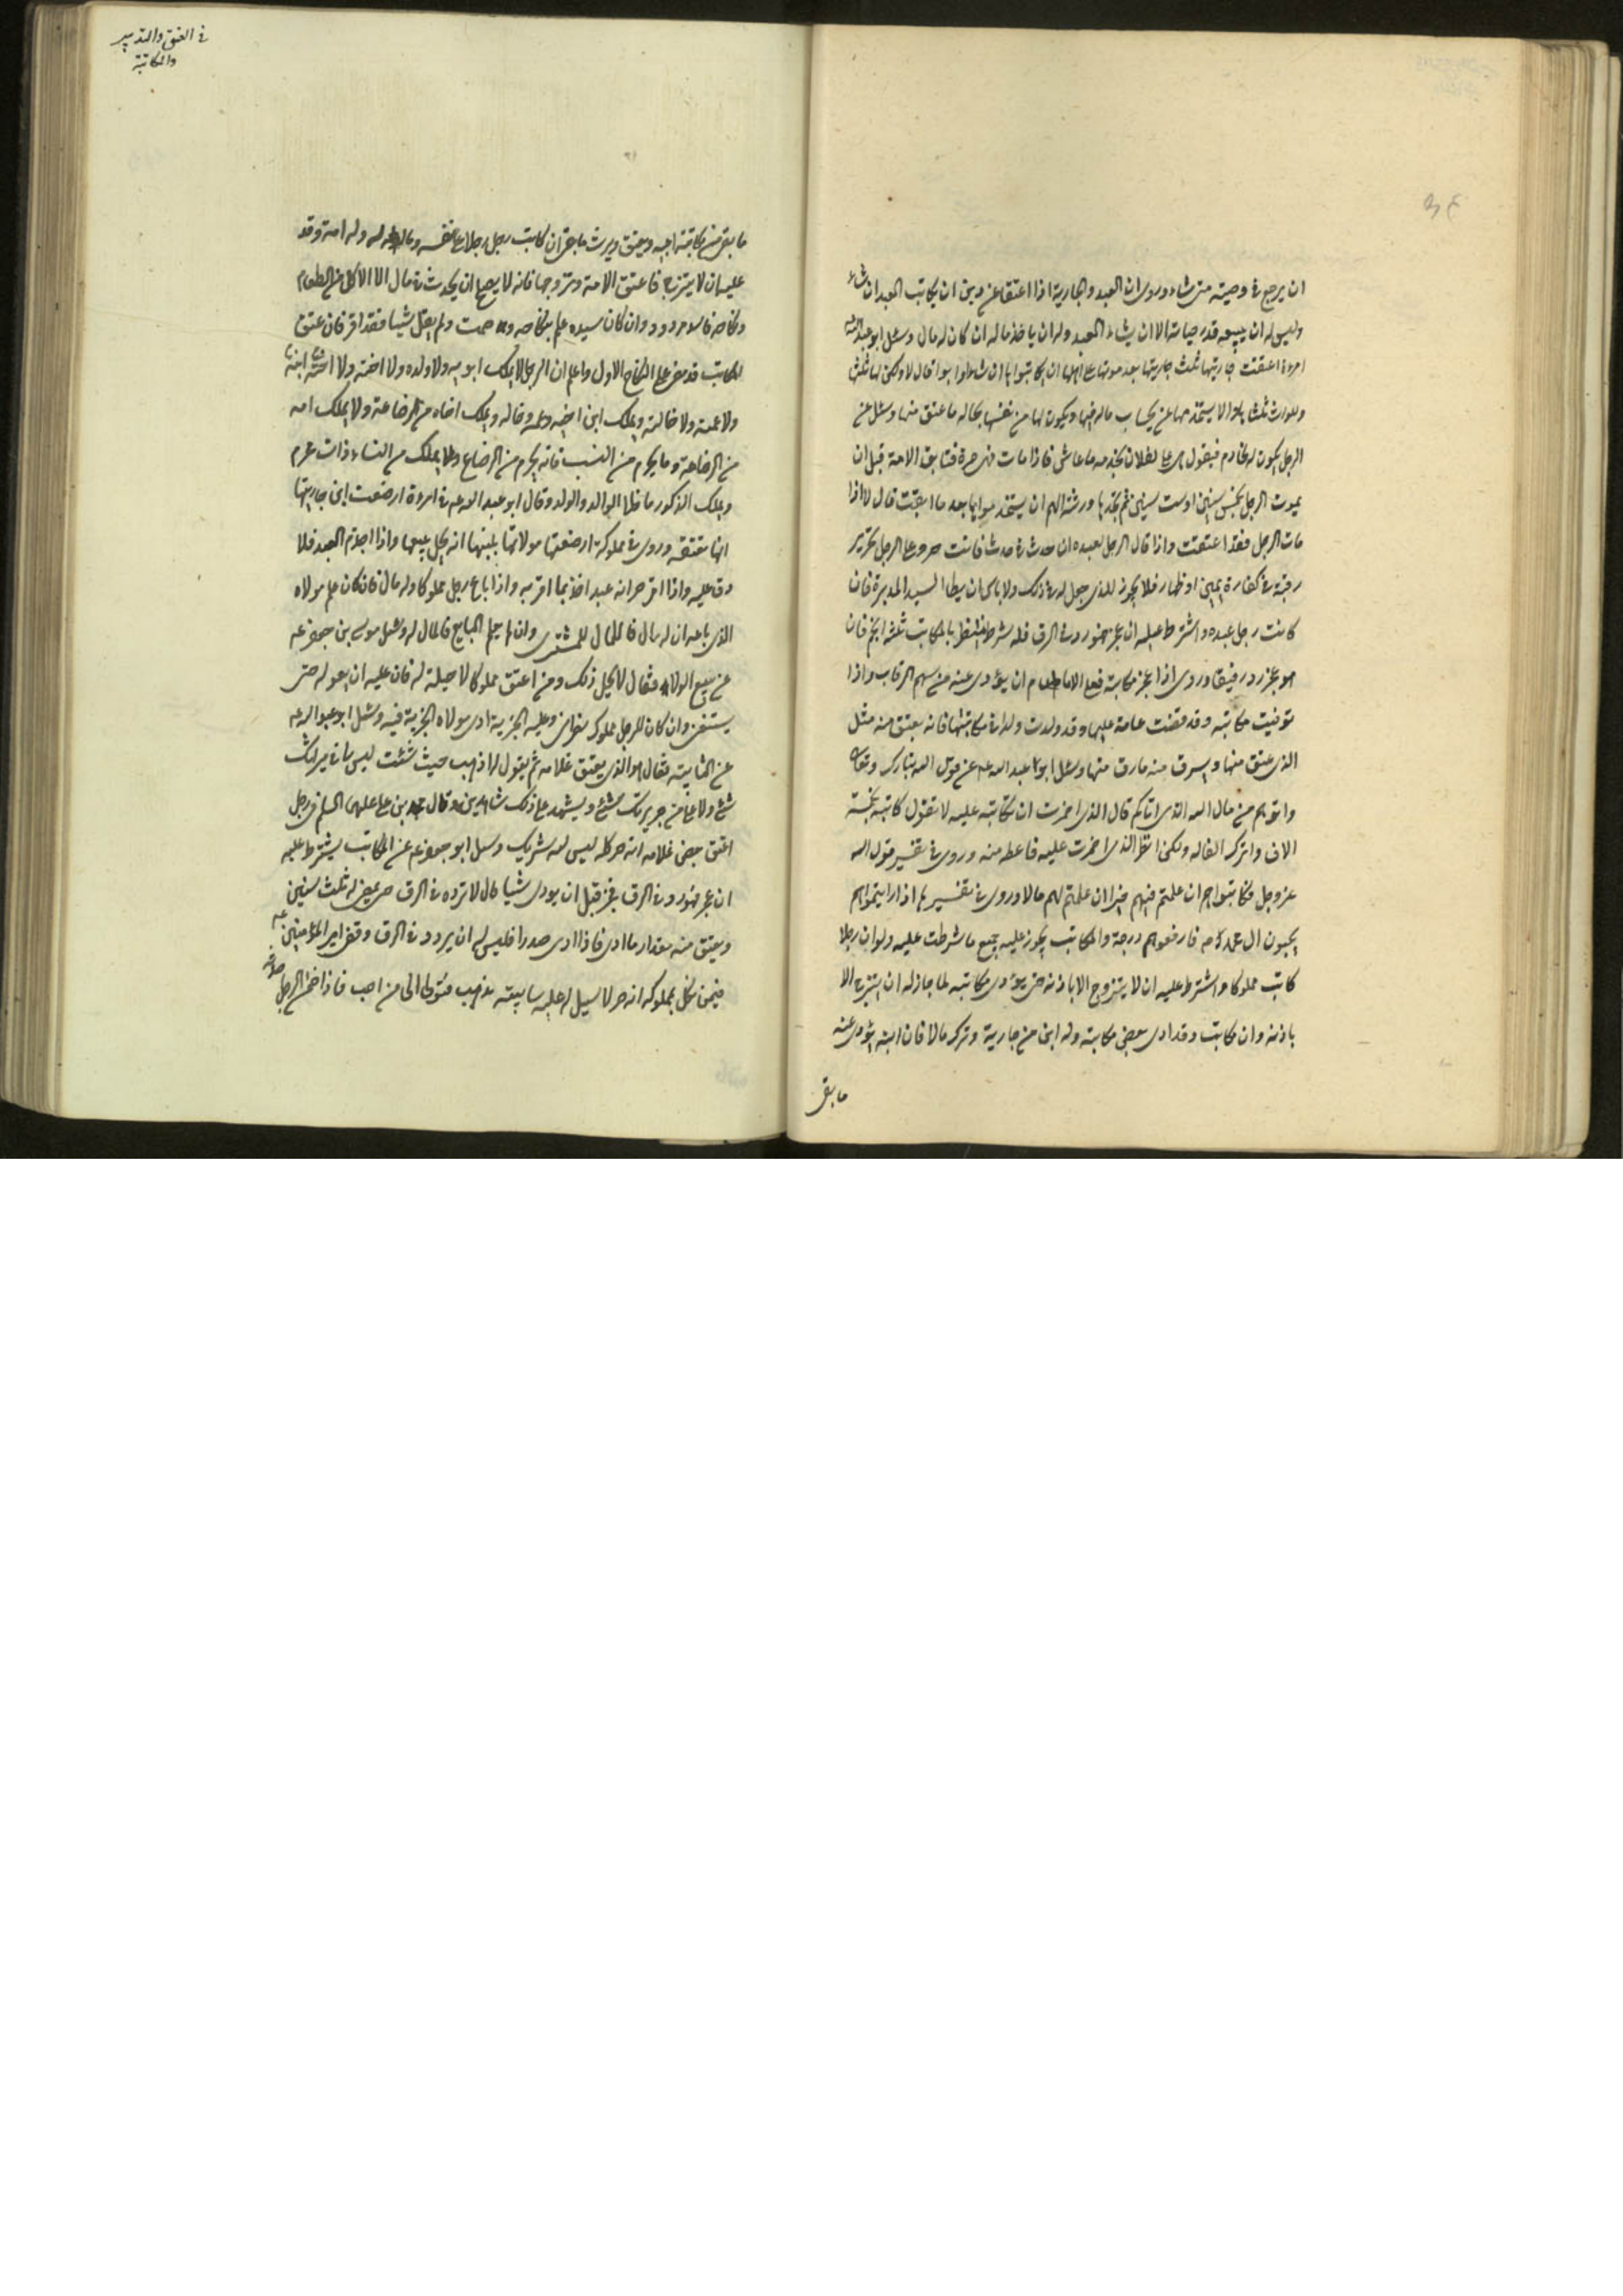 ان يرجع في وصيته متى شاء وروى ان العبد والجارية اذا اعتقا عن دين ان يكاتب العبد ان شاء
وليس له ان يبيعه قدر حياته الا ان يشاء العبد وله ان ياخذ ماله ان كان له مال وسئل ابو عبد الله عه
امرءة اعتقت جاريتها ثلث جاريتها بعد موتها على اهلها ان يكاتبوها ان شاءوا وابوا قال لا ولكن لها ثلثها
وللوارث ثلثاها يستخدمها بحساب ماله فيها ويكون لها من نفسها بحاله ما عتق منها وسئل عن
الرجل يكون له الخادم فيقول هي لفلان تخدمه ما عاش فاذا مات فهى حرة فتابق الامة قبل ان
يموت الرجل بخمس سنين او ست سنين ثم يجدها ورثته الهم ان يستخدموها بعد ما ابقت قال لا اذا
مات الرجل فقد اعتقت واذا قال الرجل لعبده ان حدث بى حدث فانت حر وعلى الرجل تحرير
رقبة في كفارة يمين او ظهار فلا يجوز للذى جعل له في ذلك ولا باس ان يطا السيد المدبرة فان
كاتب رجل عبده واشترط عليه ان عجز فهو رد في الرق فله شرطه ينتظر بالمكاتب ثلثة انجم فان
هو عجز رد رقيقا وروى اذا عجز مكاتبة فعلى الامام ان يؤدى عنه من سهم الرقاب واذا
توفيت مكاتبه وقد قضت عامة عليها وقد ولدت ولدا في مكاتبتها فانه يعتق منه مثل
الذى عتق منها ويسرق منه مارق منها وسئل ابو عبد الله عه عن قول الله تبارك وتعالى
واتوهم من مال الله الذى اتاكم قال الذى اضمرت ان تكاتبه عليه لا تقول كاتبه بخمسة
الاف واترك الفا له ولكن انظر الذى اضمرت عليه فاعطه منه وروى في تفسير قول الله
عز وجل فكاتبوهم ان علمتم فيهم خيرا ان علمتم لهم مالا وروى في تفسيرها اذا رايتموهم
يحبون ال محمد فارفعوهم درجة والمكاتب يجوز عليه جميع ما شرطت عليه ولو ان رجلا
كاتب مملوكا واشترط عليه ان لا يتزوج الا باذنه حتى يؤدى مكاتبه لما جاز له ان يتزوج الا
باذنه وان مكاتب وقد ادى بعض مكاتبه وله ابن من جارية وترك مالا فان ابنه يؤدى عنه
ما بقى
في العتق والتدبير
والمكاتبة
ما بقى من مكاتبة ابيه ويعتق ويرث ما بقى ان كاتب رجل رجلا على نفسه وماله وله امة وقد
عليه ان لا يتزوج فاعتق الامة وتزوجها فانه لا يصلح ان يحدث في مال الا الاكل من الطعام
ونكاحه فاسد مردود وان كان سيده علم بنكاحه وصمت ولم يقل شيئا فقد اقر فان عتق
المكاتب قد مضى على النكاح الاول واعلم ان الرجل لا يملك ابويه ولا ولده ولا اخته ولا ابنة
ولا عمته ولا خالته ويملك ابن اخيه وعمه وخاله ويملك اخاه من الرضاعة ولا يملك امه
من الرضاعة وما يحرم من النسب فانه يحرم من الرضاع ولا يملك من النساء ذات محرم
ويملك الذكور ما خلا الوالد والولد وقال ابو عبد الله عه في امرءة ارضعت ابن جاريتها
انها تعتقه وروى في مملوكة ارضعتها مولاتها بلبنها انه يحل بيعها واذا اجذم العبد فلا
رق عليه واذا اقر حر انه عبد اخذ بما اقر به واذا باع رجل مملوكا وله مال فان كان علم مولاه
الذى باعه ان له مال فالمال للمشترى وان لم يعلم البايع فالمال له وسئل موسى بن جعفر عه
عن بيع الولاء فقال لا يحل ذلك ومن اعتق مملوكا لا حيلة له فان عليه ان يعوله حتى
يستغنى وان كان للرجل مملوك نصرانى وعليه الجزية ادى مولاه الجزية فيه وسئل ابو عبد الله عه
عن السايبة فقال هو الذى يعتق غلامه ثم يقول له اذهب حيث شئت ليس لى في ميراثك
شئ ولا على من جريرتك شئ ويشهد على ذلك شاهدين وقال محمد بن على عليهما السلم في رجل
اعتق بعض غلامه انه حر كله ليس لله شريك وسئل ابو جعفر عه عن المكاتب يشترط عليه
ان عجز فهو رد في الرق فعجز قبل ان يودى شيئا قال لا ترده في الرق حتى يمضى له ثلث سنين
ويعتق منه بمقدار ما ادى فاذا ادى صدرا فليس له ان يردد في الرق وقضى امير المؤمنين عه
فيمن نكل بمملوكه انه حر لا سبيل له عليه سايبة يذهب فيتولى الى من احب فاذا ضمن الرجل